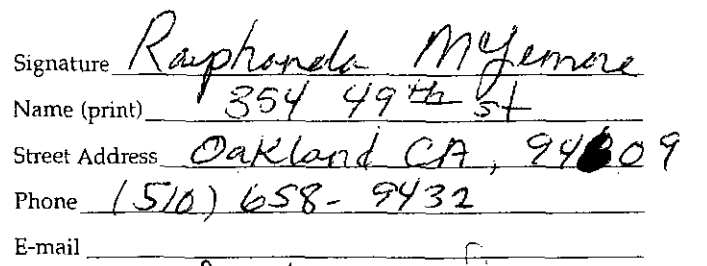 Signature Rayphonda McLemore
Name (print) 354 49th st
Street Address Oakland CA, 94609
Phone (510) 658-9432
E-mail